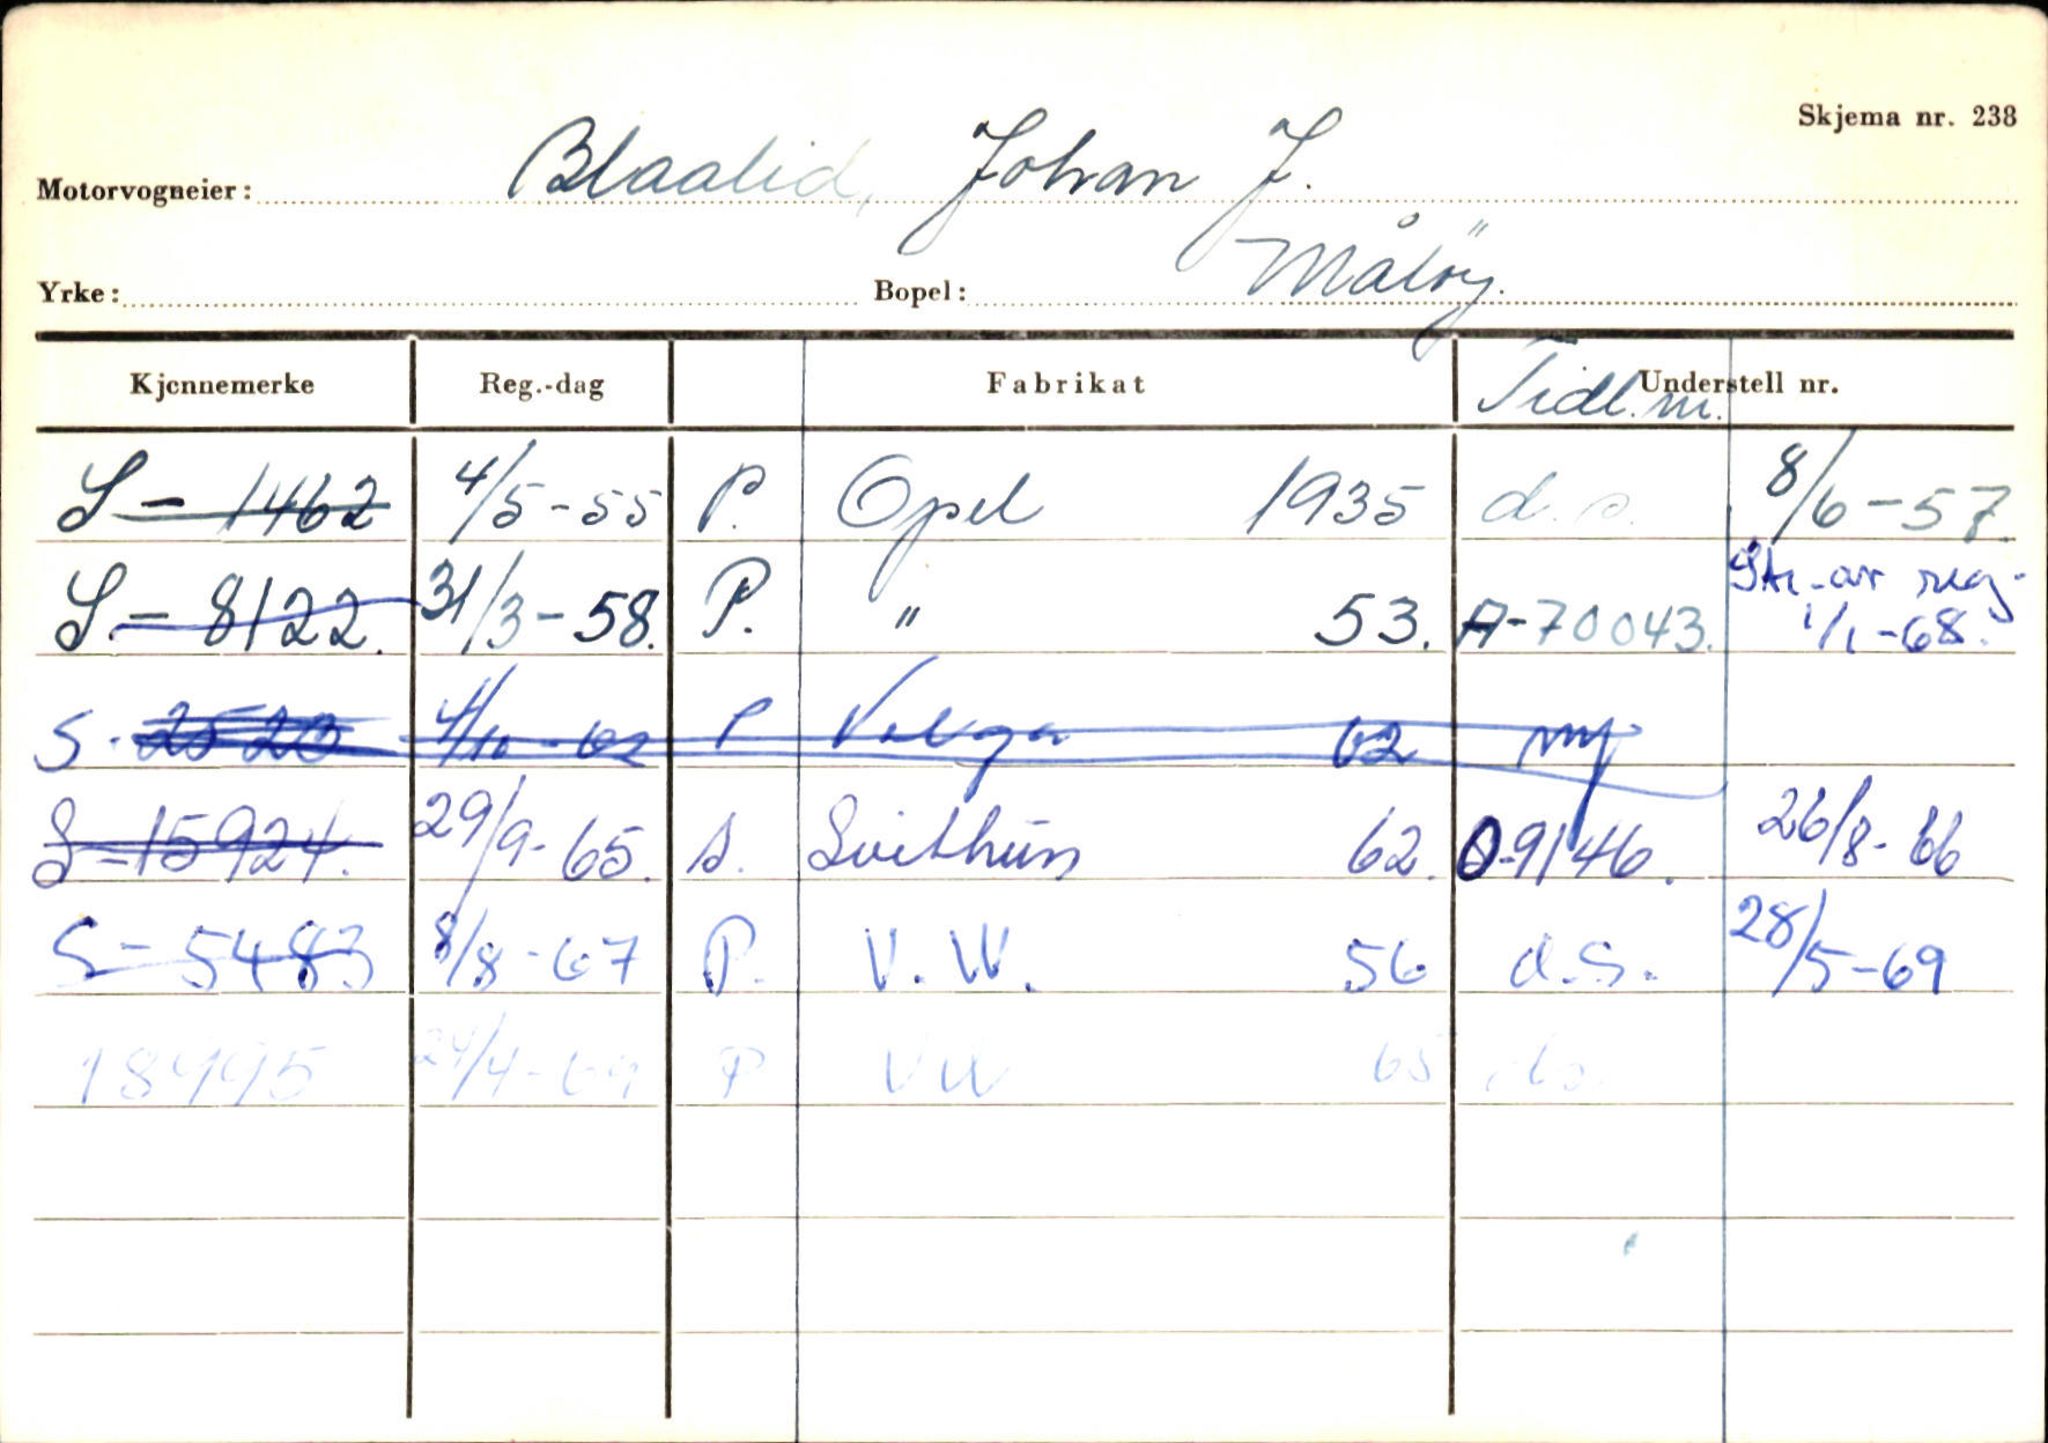 Skjema nr. 238
Motorvogneier: Blaalid, Johan J.
Yrke: Bopel: Måløy.
Kjennemerke Reg.-dag Fabrikat Tidl. nr. Understell nr.
S - 1462 4/5-55 P. Opel 1935 d.s. 8/6-57
S - 8122. 31/3-58. P. " 53. A-70043. Str. av reg.
1/1-68.
S - 2520 4/10-62 P Volga 62 ny
S-15924. 29/9-65. s. Svithun 62. O-9146. 26/8-66
S-5483 8/8-67 P. V.W. 56 d.s. 28/5-69
18495 24/4-69 P VW 65 ds.